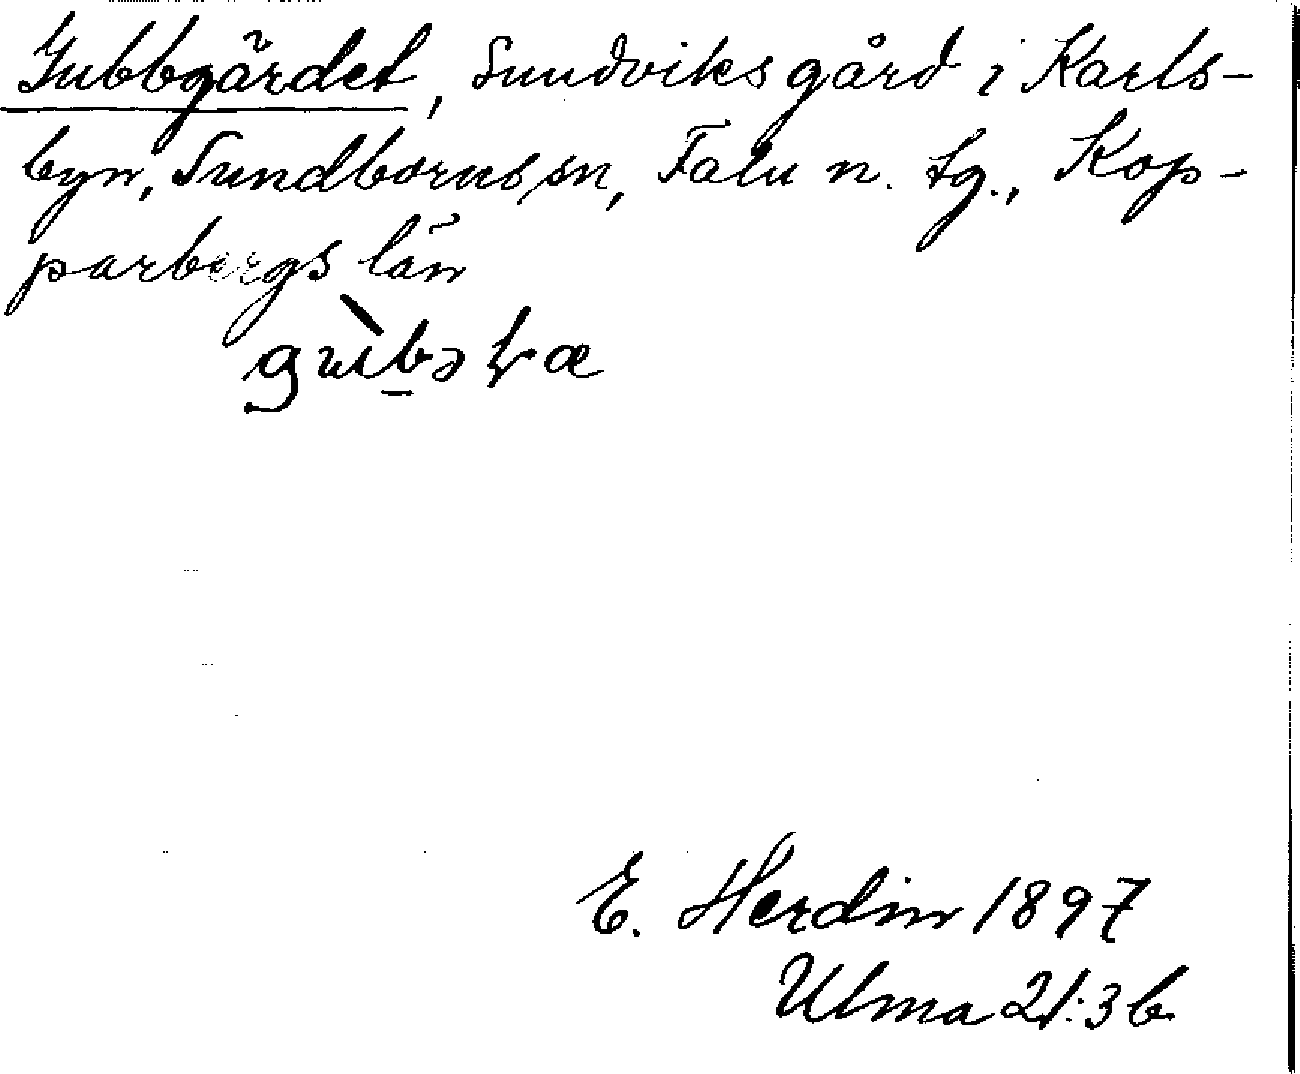 Gubbgärdet, Sundviksgård i Karls-
byn, Sundborns sn, Falu n. tg., Kop-
parbergs län
E. Herdin 1897
Ulma 21:3b